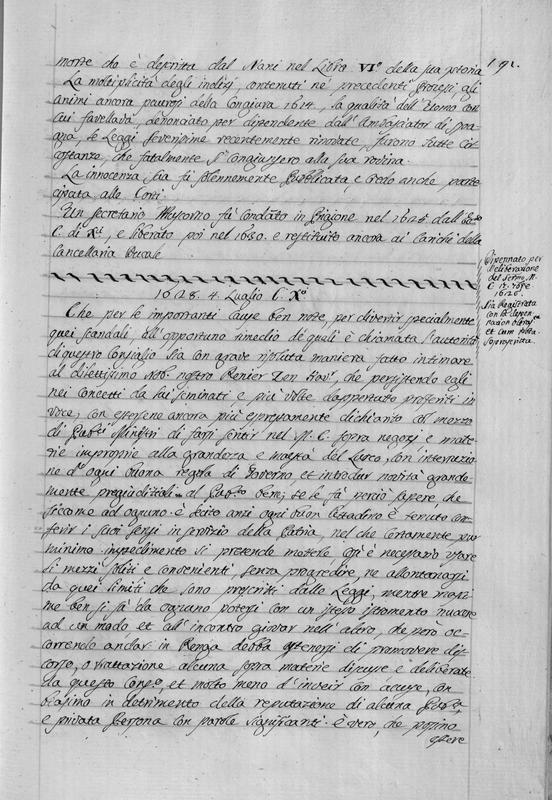 192.
morte che è descritta dal Nani nel Libro VI.º della sua storia
La moltiplicità degli indizj, contenuti ne' precedenti Processi, gli
animi ancora paurosi della Congiura 1614, la qualità dell'Uomo, con
cui favellava, denonciato per dipendente dall'Ambasciator di Spa-
gna, le Leggi severissime recentemente rinovate, furono tutte Cir-
costanze, che fatalmente si congiunsero alla sua rovina.
La innocenza sua fù solennemente Pubblicata, e credo anche parte-
cipata alle Corti.
Un secretario fù condato in Prigione nel 1628 dall'
C. di Xci, e liberato poi nel 1630. e restituito ancora ai Carichi della
Cancellaria Ducale
1628. 4. Luglio C. Xº
Che per le importanti Cause ben note, per divertir specialmente
quei scandali, all'opportuno rimedio de' quali è chiamata l'autorità
di questo Consiglio sia con grave risoluta maniera fatto intimare
al dilettissimo Nob. nostro Renier Zen Kavr, che persistendo egli
nei concetti da lui seminati e più volte dappertutto proferiti in
voce, con essersene ancora più espressamente dichiarito col mezzo
di Pubci Ministri di farsi sentir nel M. C. sopra negozj e mate-
rie improprie alla grandezza e maestà del Loco, con interruzio-
ne d'ogni buona regola di Governo, et introdur novità grande-
mente pregiudiziali al Pubco bene; se le fà perciò sapere, che
siccome ad ognuno è lecito anzi ogni buon Cittadino è tenuto con-
ferir i suoi sensi in servizio della Patria, nel che certamente pur
minimo impedimento si pretende metterle così è necessario usare
di mezzi soliti e convenienti, senza progredire, ne allontanarsi
da quei limiti che sono prescritti dalle Leggi, mentre massi-
me ben si sà da ognuno potersi con un istesso istromento nuocere
ad un modo et all'incontro giovar nell'altro, che però oc-
correndo andar in Renga debba astenersi di promovere dis-
corso, o trattazione alcuna sopra materie discusse e deliberate
da questo Consº, et molto meno d'inveir con accuse, con
biasimo in detrimento della reputazione di alcuna Pubca
e privata Persona con parole significanti. È vero, che possino
essere
Dipennato per
deliberazione
del Sermo M.
C. 17. 7bre
1628.
sia registrata
con
et cum nota
soprascritta.